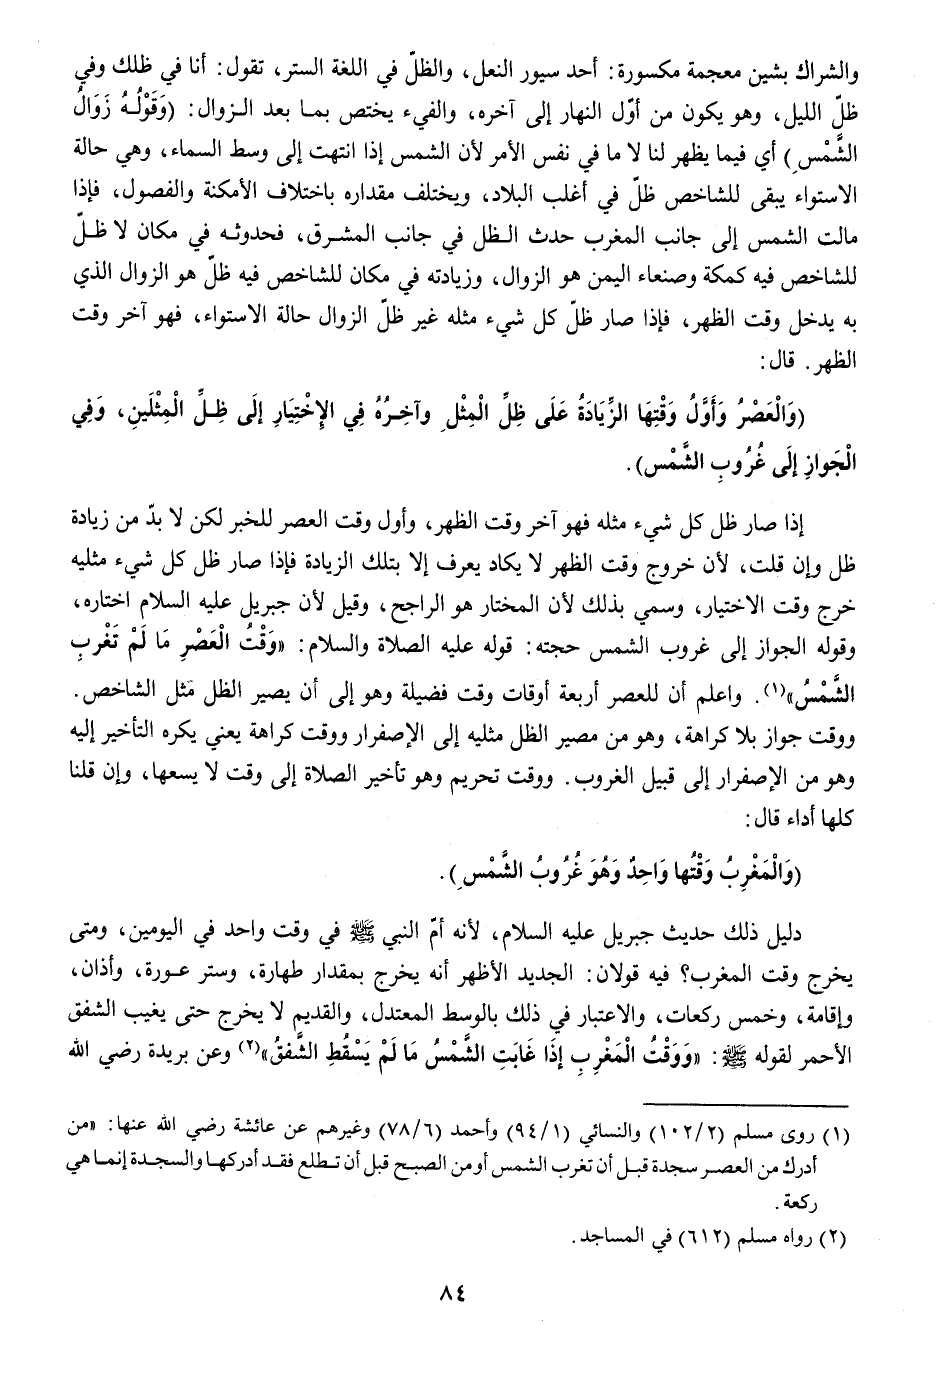 والشراك بشين معجمة مكسورة: أحد سيور النعل، والظلّ في اللغة الستر، تقول: أنا في ظلك وفي
ظلّ الليل، وهو يكون من أوّل النهار إلى آخره، والفيء يختص بمـا بعد الـزوال: (وَقَوْلُـهُ زَوَالُ
الشَّمْسِ) أي فيما يظهر لنا لا ما في نفس الأمر لأن الشمس إذا انتهت إلى وسط السماء، وهي حالة
الاستواء يبقى للشاخص ظلّ في أغلب البلاد، ويختلف مقداره باختلاف الأمكنة والفصول، فإذا
مالت الشمس إلى جانب المغرب حدث الـظل في جانب المشـرق، فحدوثـه في مكان لا ظـلّ
للشاخص فيه كمكة وصنعاء اليمن هو الزوال، وزيادته في مكان للشاخص فيه ظلّ هو الزوال الذي
به يدخل وقت الظهر، فإذا صار ظلّ كل شيء مثله غير ظلّ الزوال حالة الاستواء، فهو آخر وقت
الظهر. قال:
(وَالْعَصْرُ وَأَوَّلُ وَقْتِهَا الزِّيَادَةُ عَلَى ظِلِّ الْمِثْلِ وآخِرُهُ فِي الإِخْتِيَارِ إِلَى ظِـلِّ الْمِثْلَينِ، وَفِي
الْجَوازِ إِلَى غُرُوبِ الشَّمْس).
إذا صار ظل كل شيء مثله فهو آخر وقت الظهر، وأول وقت العصر للخبر لكن لا بدّ من زيادة
ظل وإن قلت، لأن خروج وقت الظهر لا يكاد يعرف إلا بتلك الزيادة فإذا صار ظل كل شيء مثليه
خرج وقت الاختيار، وسمي بذلك لأن المختار هو الراجح، وقيل لأن جبريل عليه السلام اختاره،
وقوله الجواز إلى غروب الشمس حجته: قوله عليه الصلاة والسلام: «وَقْتُ الْعَصْرِ مَا لَمْ تَغْربِ
الشَّمْسُ»(١). واعلم أن للعصر أربعة أوقات وقت فضيلة وهو إلى أن يصير الظل مثل الشاخص.
ووقت جواز بلا كراهة، وهو من مصير الظل مثليه إلى الإصفرار ووقت كراهة يعني يكره التأخير إليه
وهو من الإصفرار إلى قبيل الغروب. ووقت تحريم وهو تأخير الصلاة إلى وقت لا يسعها، وإن قلنا
كلها أداء قال:
(وَالْمَغْرِبُ وَقْتُها وَاحِدٌ وَهُوَ غُرُوبُ الشَّمْسِ).
دليل ذلك حديث جبريل عليه السلام، لأنه أمّ النبي ﷺ في وقت واحد في اليومين، ومتى
يخرج وقت المغرب؟ فيه قولان: الجديد الأظهر أنه يخرج بمقدار طهارة، وستر عـورة، وأذان،
وإقامة، وخمس ركعات، والاعتبار في ذلك بالوسط المعتدل، والقديم لا يخرج حتى يغيب الشفق
الأحمر لقوله ﷺ: «وَوَقْتُ الْمَغْرِبِ إِذَا غَابَتِ الشَّمْسُ مَا لَمْ يَسْقُطِ الشَّفقُ»(٢) وعن بريدة رضي الله
(١) روى مسلم (١٠٢/٢) والنسائي (٩٤/١) وأحمد (٧٨/٦) وغيرهم عن عائشة رضي الله عنها: «من
أدرك من العصر سجدة قبل أن تغرب الشمس أو من الصبح قبل أن تطلع فقد أدركها والسجدة إنما هي
ركعة.
(٢) رواه مسلم (٦١٢) في المساجد.
٨٤